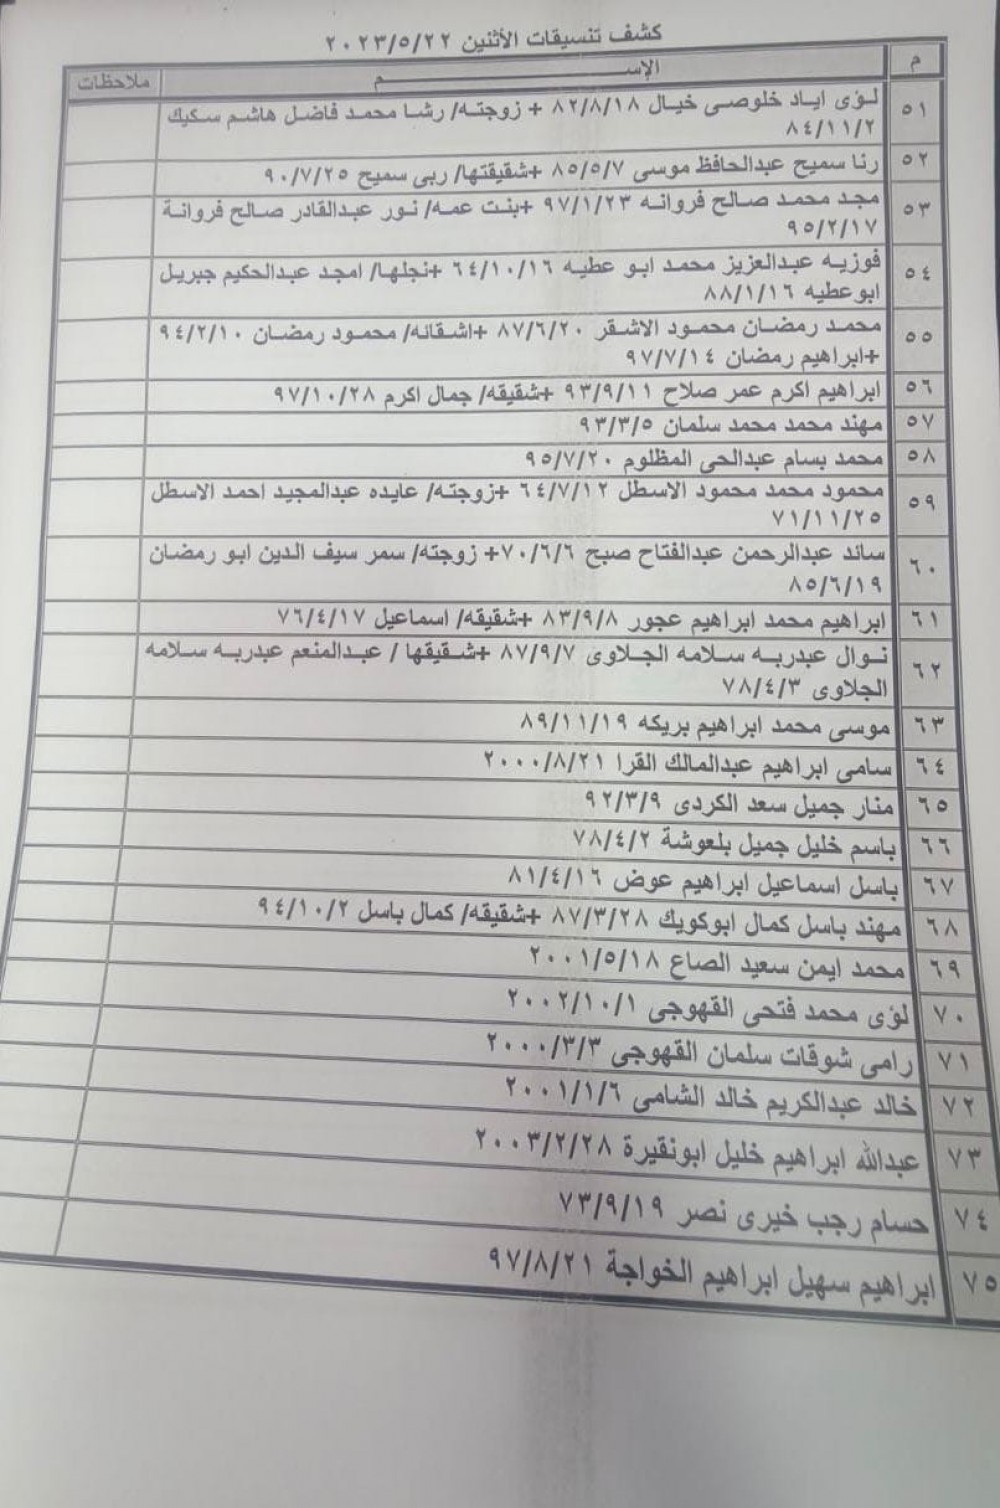 كشف تنسيقات الأثنين ٢٠٢٣/٥/٢٢
م الإســـــــــــم ملاحظات
٥١ لـؤى ايـاد خلوصـى خيـال ٨٢/٨/١٨ + زوجتـه/ رشـا محمـد فاضـل هاشـم سـكيك
٨٤/١١/٢
٥٢ رنا سميح عبدالحافظ موسى ٨٥/٥/٧ +شقيقتها/ ربى سميح ٩٠/٧/٢٥
٥٣ مجـد محمـد صـالح فروانـه ٩٧/١/٢٣ +بنـت عمـه/ نـور عبـدالقادر صـالح فروانـة
٩٥/٢/١٧
٥٤ فوزيـه عبـدالعزيز محمـد ابـو عطيـه ٦٤/١٠/١٦ +نجلهـا/ امجـد عبـدالحكيم جبريـل
ابوعطيه ٨٨/١/١٦
٥٥ محمـد رمضـان محمـود الاشـقر ٨٧/٦/٢٠ +اشـقائه/ محمـود رمضـان ٩٤/٢/١٠
+ابراهيم رمضان ٩٧/٧/١٤
٥٦ ابراهيم اكرم عمر صلاح ٩٣/٩/١١ +شقيقه/ جمال اكرم ٩٧/١٠/٢٨
٥٧ مهند محمد محمد سلمان ٩٣/٣/٥
٥٨ محمد بسام عبدالحى المظلوم ٩٥/٧/٢٠
٥٩ محمـود محمـد محمـود الاسـطل ٦٤/٧/١٢ +زوجتـه/ عايـده عبدالمجيـد احمـد الاسـطل
٧١/١١/٢٥
٦٠ سـائد عبـدالرحمن عبـدالفتاح صـبح ٧٠/٦/٦+ زوجتـه/ سـمر سـيف الـدين ابـو رمضـان
٨٥/٦/١٩
٦١ ابراهيم محمد ابراهيم عجور ٨٣/٩/٨ +شقيقه/ اسماعيل ٧٦/٤/١٧
٦٢ نـوال عبدربـه سـلامه الجـلاوى ٨٧/٩/٧ +شـقيقها / عبـدالمنعم عبدربـه سـلامه
الجلاوى ٧٨/٤/٣
٦٣ موسى محمد ابراهيم بريكه ٨٩/١١/١٩
٦٤ سامى ابراهيم عبدالمالك القرا ٢٠٠٠/٨/٢١
٦٥ منار جميل سعد الكردى ٩٢/٣/٩
٦٦ باسم خليل جميل بلعوشة ٧٨/٤/٢
٦٧ باسل اسماعيل ابراهيم عوض ٨١/٤/١٦
٦٨ مهند باسل كمال ابوكويك ٨٧/٣/٢٨ +شقيقه/ كمال باسل ٩٤/١٠/٢
٦٩ محمد ايمن سعيد الصاع ٢٠٠١/٥/١٨
٧٠ لؤى محمد فتحى القهوجى ٢٠٠٢/١٠/١
٧١ رامى شوقات سلمان القهوجى ٢٠٠٠/٣/٣
٧٢ خالد عبدالكريم خالد الشامى ٢٠٠١/١/٦
٧٣ عبدالله ابراهيم خليل ابونقيرة ٢٠٠٣/٢/٢٨
٧٤ حسام رجب خيرى نصر ٧٣/٩/١٩
٧٥ ابراهيم سهيل ابراهيم الخواجة ٩٧/٨/٢١